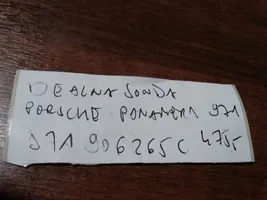 IDEALNA SONDA
PORSCHE PONAMERA 971
971 906265C 475,-